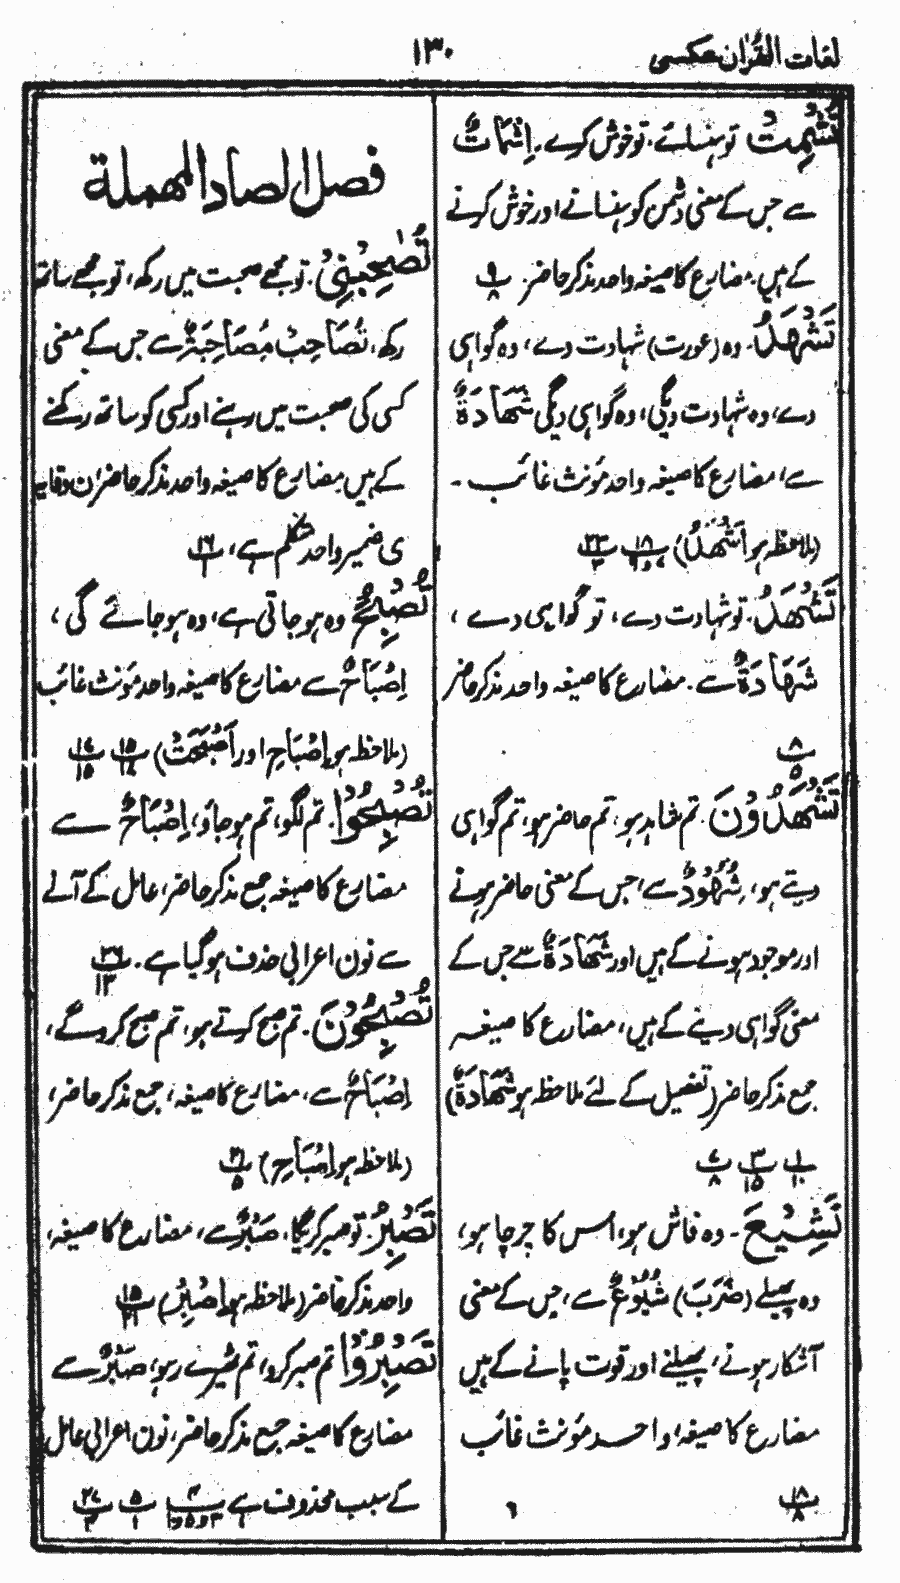 لغات القرآن عکسی
۱۳۰
تُشْمِتْ تو ہنسائے۔ تو خوش کرے۔ اِشْمَاتٌ
سے جس کے معنی دشمن کو ہنسانے اور خوش کرنے
کے ہیں۔ مضارع کا صیغہ واحد مذکر حاضر۔ ۹/۸
تَشْهَدُ۔ وہ (عورت) شہادت دے، وہ گواہی
دے، وہ شہادت دیگی، وہ گواہی دیگی شَهَادَةٌ
سے، مضارع کا صیغہ واحد مؤنث غائب۔
(ملاحظہ ہو اَشْهَدُ) ۱۸/
تَشْهَدُ۔ تو شہادت دے، تو گواہی دے،
شَهَادَةٌ سے۔ مضارع کا صیغہ واحد مذکر حاضر
۸/۵
تَشْهَدُوْنَ۔ تم شاہد ہو، تم حاضر ہو، تم گواہی
دیتے ہو، شُهُوْدٌ سے، جس کے معنی حاضر ہونے
اور موجود ہونے کے ہیں اور شَهَادَةٌ سے جس کے
معنی گواہی دینے کے ہیں، مضارع کا صیغہ
جمع مذکر حاضر (تفصیل کے لئے ملاحظہ ہو شَهَادَةٌ)
۱/۱۰ ۳/۱۵ ۷/۸
تَشِيْعَ۔ وہ فاش ہو، اس کا چرچا ہو،
وہ پھیلے (ضَرَبَ) شُيُوْعٌ سے، جس کے معنی
آشکار ہونے، پھیلنے اور قوت پانے کے ہیں
مضارع کا صیغہ، واحد مؤنث غائب
۱۸/۸
فصل الصاد المهملة
تُصَاحِبْنِيْ۔ تو مجھے صحبت میں رکھ، تو مجھے ساتھ
رکھ، تُصَاحِبْ مُصَاحَبَةٌ سے جس کے معنی
کسی کی صحبت میں رہنے اور کسی کو ساتھ رکھنے
کے ہیں مضارع کا صیغہ واحد مذکر حاضر، ن وقایہ
ی ضمیر واحد متکلم ہے، ۱۶/۱
تُصْبِحُ وہ ہو جاتی ہے، وہ ہو جائے گی،
اِصْبَاحٌ سے مضارع کا صیغہ واحد مؤنث غائب
(ملاحظہ ہو اِصْبَاحِ اور اَصْبَحَتْ) ۱۵/۱۷ ۱۷/۱۵
تُصْبِحُوْا۔ تم لگو، تم ہو جاؤ، اِصْبَاحٌ سے
مضارع کا صیغہ جمع مذکر حاضر، عامل کے آنے
سے نون اعرابی حذف ہو گیا ہے۔ ۲۶/۱۳
تُصْبِحُوْنَ۔ تم صبح کرتے ہو، تم صبح کرو گے،
اِصْبَاحٌ سے، مضارع کا صیغہ، جمع مذکر حاضر،
(ملاحظہ ہو اِصْبَاحِ) ۲۱/۵
تَصْبِرُ۔ تو صبر کریگا، صَبْرٌ سے، مضارع کا صیغہ،
واحد مذکر حاضر (ملاحظہ ہو اِصْبِرْ) ۱۵/۲۱
تَصْبِرُوْا تم صبر کرو، تم ٹھیرے رہو، صَبْرٌ سے
مضارع کا صیغہ جمع مذکر حاضر، نون اعرابی عامل
کے سبب محذوف ہے ۴/۳و۵و۱ ۵/۱ ۲۷/۳